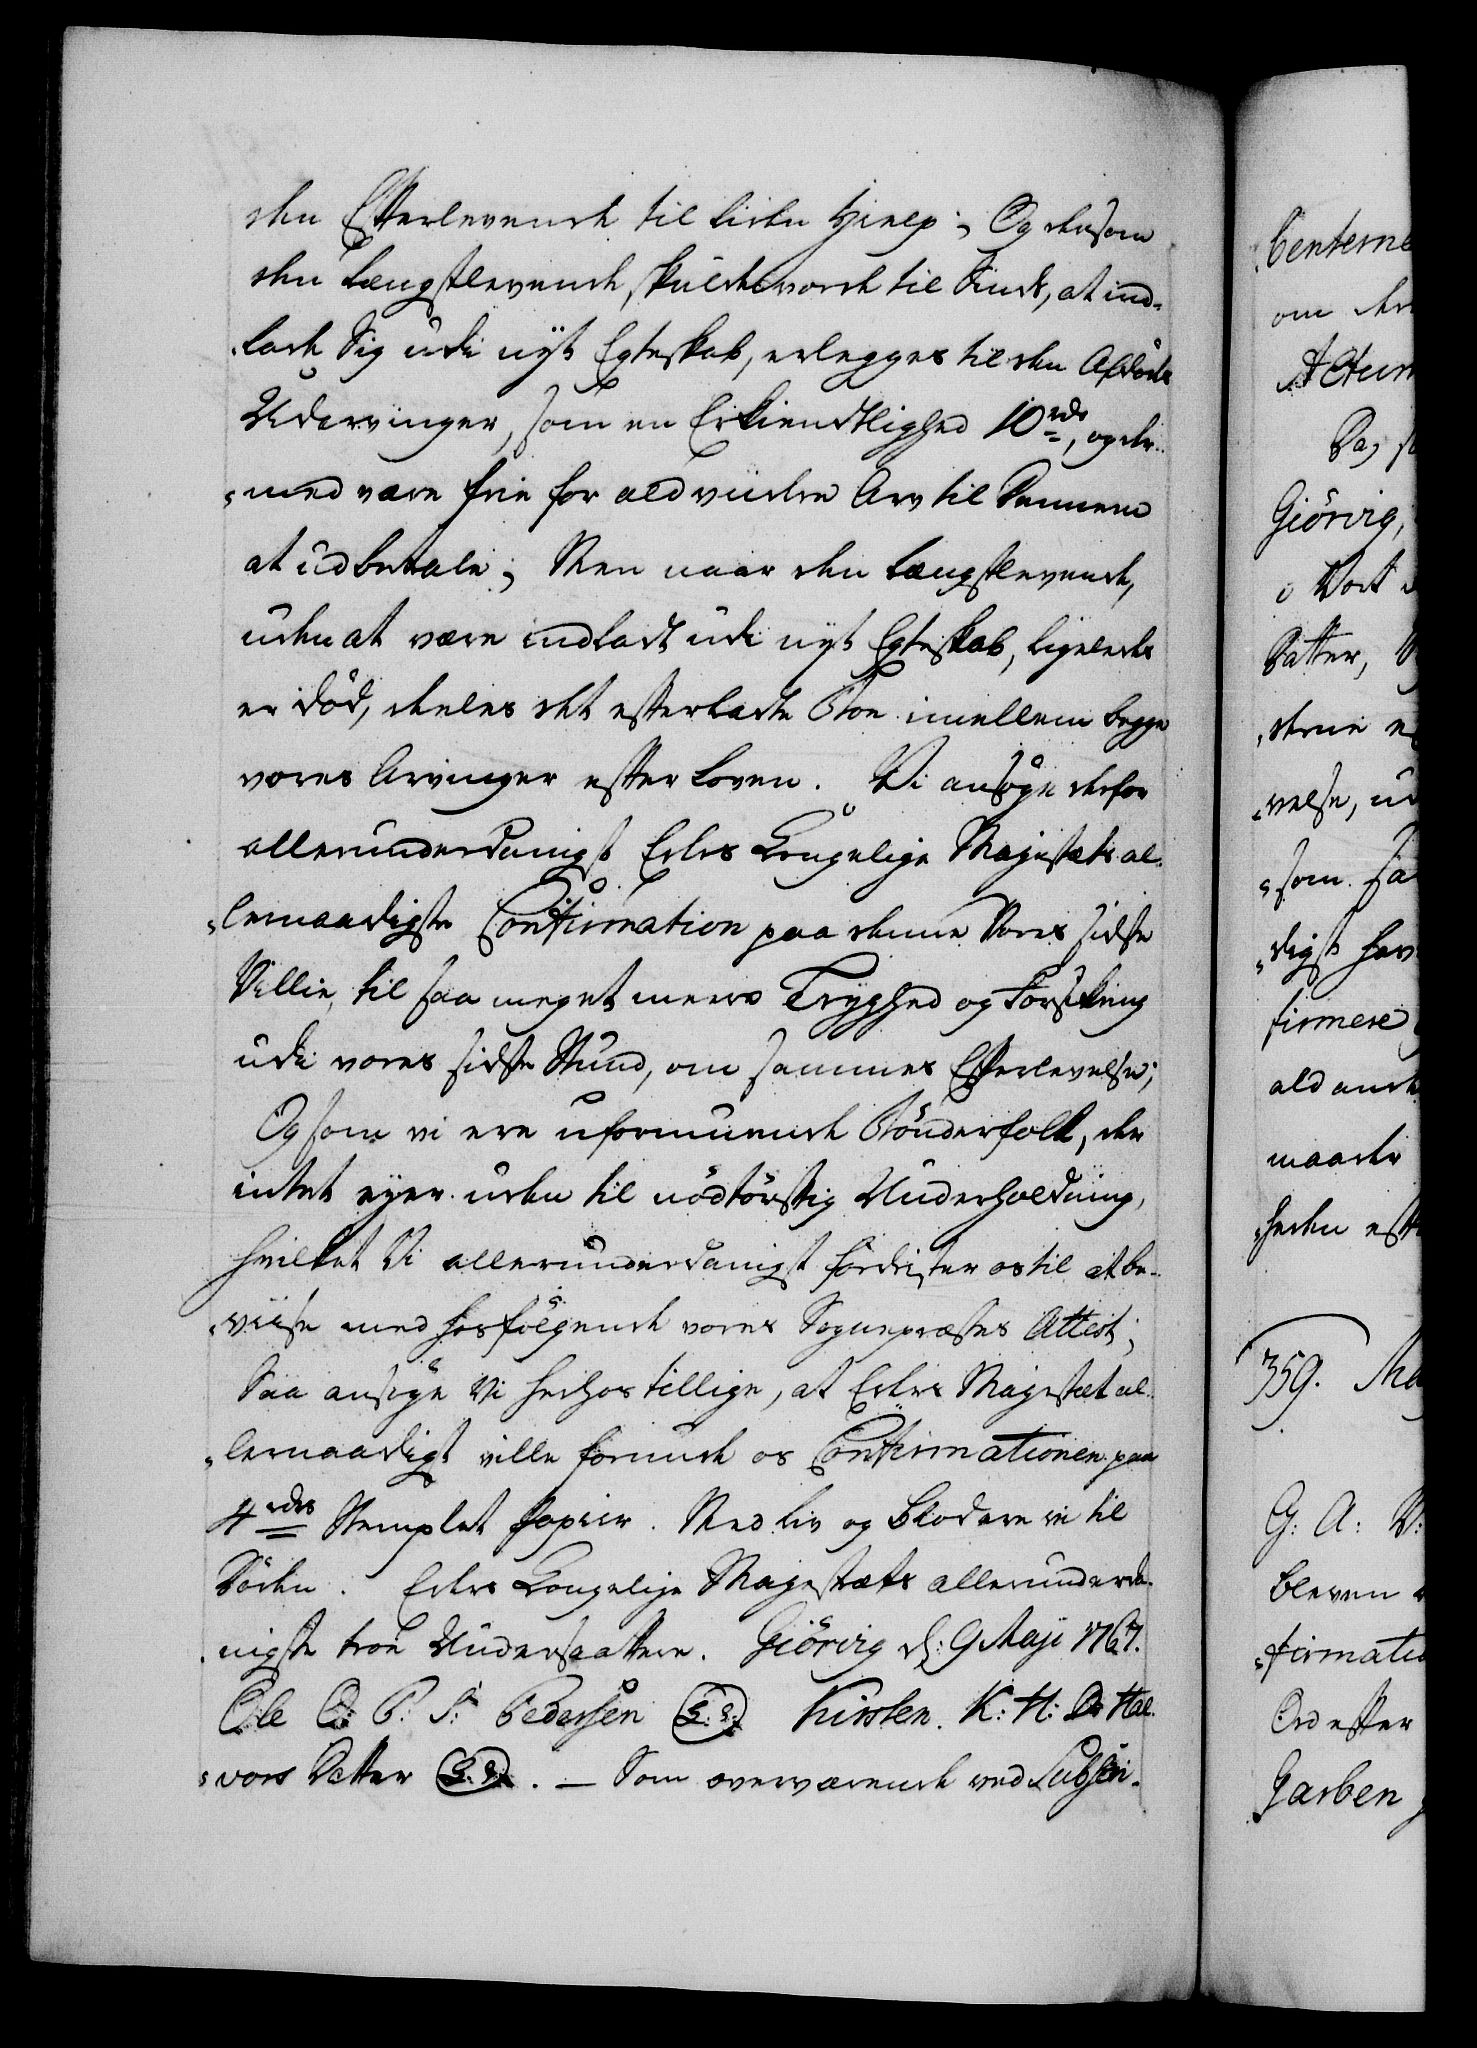 den Efterlevende til liden Hielp; Og dersom
den Længstlevende, skulde vorde til Sinds, at ind-
lade Sig udi nyt Egteskab, erlegges til den Afdødes
Udarvinger, som en Erkiendtlighed 10 rdr, og der-
med være frie for ald viidere Arv til Dennem
at udbetale; Men naar den Længstlevende,
uden at være indladt udi nyt Egteskab, ligeleedes
er død, deeles det efterladte Boe imellem begge
vores Arvinger efter Loven. Vi ansøge derfor
allerunderdanigst Eders Kongelige Majestæts al-
lernaadigste Confirmation paa denne Vores sidste
Villie, til saa meget meere Tryghed og Forsikring
udi vores sidste Stund, om sammes Efterlevelse;
Og som vi ere uformuende Bönderfolk, der
intet eyer uden til nödtörftig Underholdning,
hvilket Vi allerunderdanigst fordrister os til at be-
viise med hosfölgende vores Sognepræstes Attest;
Saa ansöge Vi herhos tillige, at Eders Majestæt al-
lernaadigst ville forunde os Confirmationen paa
4 rdrs Stemplet Papiir. Med Liv og Blod ere vi til
Döden. Eders Kongelige Majestæts allerunderda-
nigste troe Undersaattere. Giörvig d: 9 Maji 1767.
Ole O: P: S: Pedersen (L: S:) Kirsten. K: H: D: Hal-
vors Datter (L: S:). — Som overværende ved Subscri-
benterne
om
Actum
Giörvig,
Datter,
velse,
som
digst
firmere
ald
maader
heden
359.
G: A: V:
bleven
firmatio
Ord efter
Garben